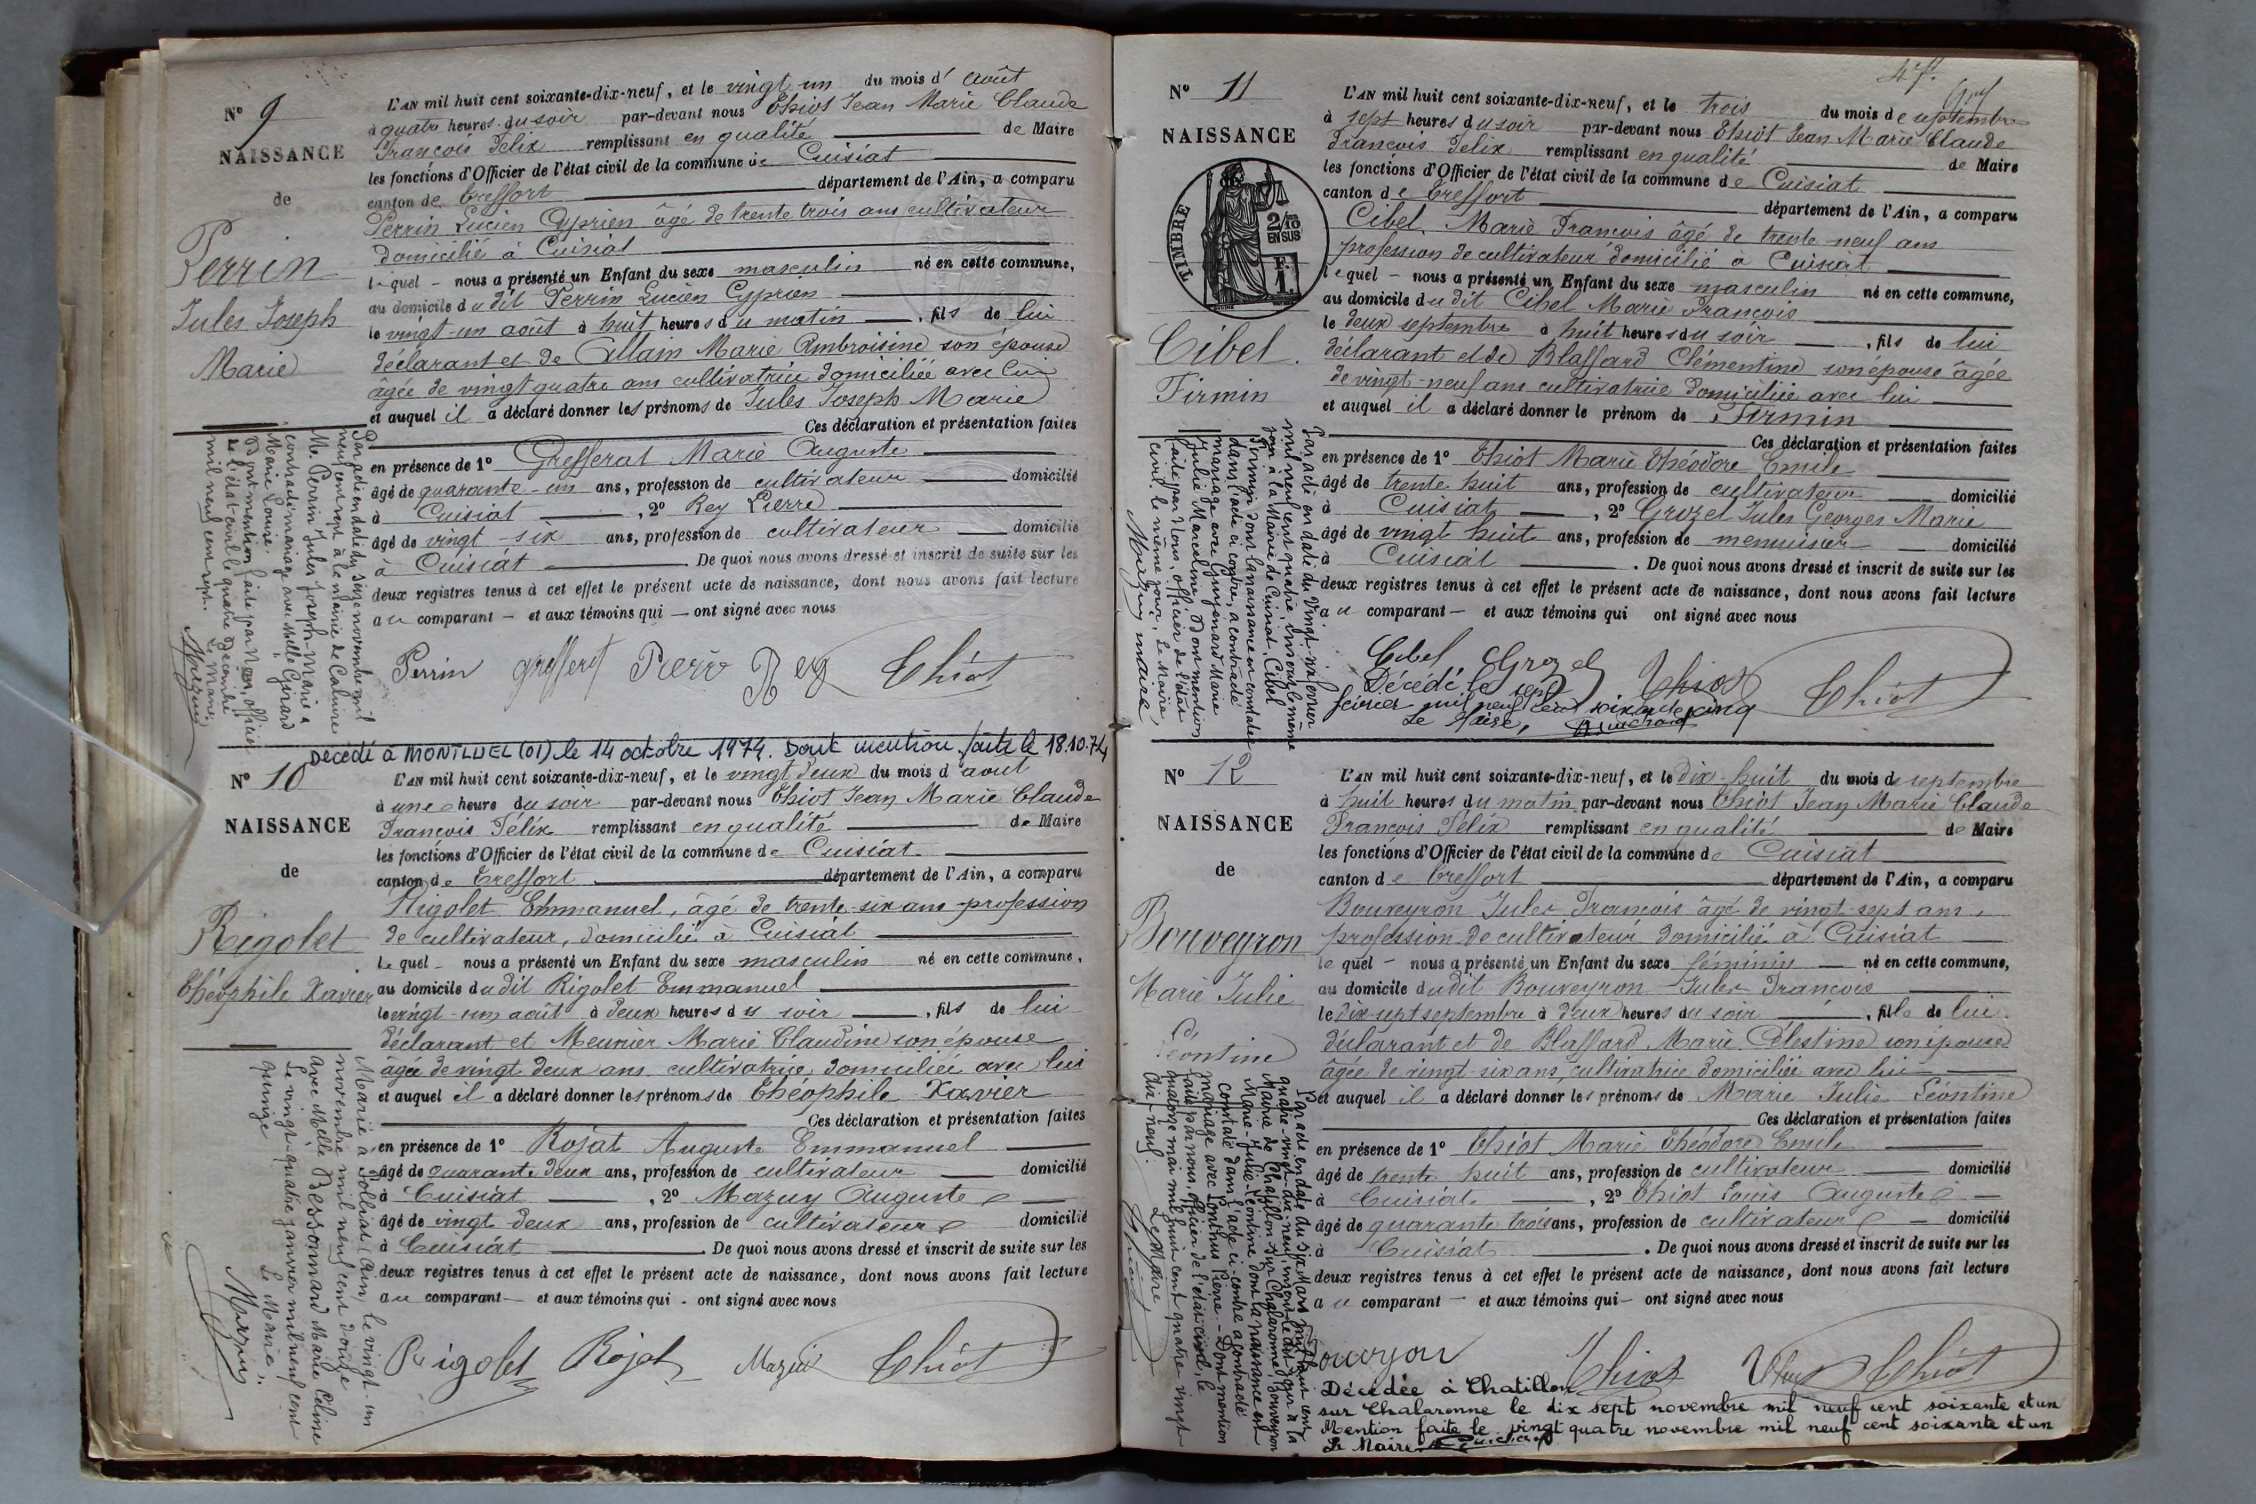 N° 9
NAISSANCE
de
Perrin
Jules Joseph
Marie
L'AN mil huit cent soixante-dix-neuf, et le vingt un du mois d' août
à quatre heures du soir par-devant nous Thiot Jean Marie Claude
François Félix remplissant en qualité de Maire
les fonctions d'Officier de l'état civil de la commune de Cuisiat
canton de Treffort département de l'Ain, a comparu
Perrin Lucien Cyprien âgé de trente trois ans cultivateur
domicilié à Cuisiat
lequel nous a présenté un Enfant du sexe masculin né en cette commune,
au domicile du dit Perrin Lucien Cyprien
le vingt-un août à huit heures du matin, fils de lui
déclarant et de Allain Marie Ambroisine son épouse
âgée de vingt quatre ans cultivatrice domiciliée avec lui
et auquel il a déclaré donner les prénoms de Jules Joseph Marie
Ces déclaration et présentation faites
en présence de 1° Grefferat Marie Auguste
âgé de quarante-un ans, profession de cultivateur domicilié
à Cuisiat, 2° Rey Pierre
âgé de vingt-six ans, profession de cultivateur domicilié
à Cuisiat. De quoi nous avons dressé et inscrit de suite sur les
deux registres tenus à cet effet le présent acte de naissance, dont nous avons fait lecture
au comparant — et aux témoins qui — ont signé avec nous
Perrin Grefferat Pierre Rey Thiot
Par acte en date du seize novembre mil
neuf cent sept à la mairie de Caluire
Mr Perrin Jules Joseph-Marie a
contracté mariage avec Melle Girard
Marie Louise.
Dont mention faite par Nous, officier
de l'état-civil le quatre décembre
mil neuf cent sept.
Le Maire,
Décédé à MONTLUEL (01) le 14 octobre 1974. Dont mention faite le 18.10.74
N° 10
NAISSANCE
de
Rigolet
Théophile Xavier
L'AN mil huit cent soixante-dix-neuf, et le vingt deux du mois d'août
à une heure du soir par-devant nous Thiot Jean Marie Claude
François Félix remplissant en qualité de Maire
les fonctions d'Officier de l'état civil de la commune de Cuisiat
canton de Treffort département de l'Ain, a comparu
Rigolet Emmanuel, âgé de trente-six ans profession
de cultivateur, domicilié à Cuisiat
lequel — nous a présenté un Enfant du sexe masculin né en cette commune,
au domicile du dit Rigolet Emmanuel
le vingt-un août à deux heures du soir, fils de lui
déclarant et Meunier Marie Claudine son épouse
âgée de vingt deux ans cultivatrice domiciliée avec lui
et auquel il a déclaré donner les prénoms de Théophile Xavier
Ces déclaration et présentation faites
en présence de 1° Rojat Auguste Emmanuel
âgé de quarante deux ans, profession de cultivateur domicilié
à Cuisiat, 2° Mazuy Auguste
âgé de vingt deux ans, profession de cultivateur domicilié
à Cuisiat. De quoi nous avons dressé et inscrit de suite sur les
deux registres tenus à cet effet le présent acte de naissance, dont nous avons fait lecture
au comparant — et aux témoins qui — ont signé avec nous
Rigolet Rojat Mazuy Thiot
Marié à Polliat (Ain) le vingt-un
novembre mil neuf cent douze
avec Melle Bessonnard Marie Céline
Le vingt-quatre janvier mil neuf cent
quinze
Le Maire,
N° 11
NAISSANCE
TIMBRE
2/10 EN SUS
F. 1.
Cibel
Firmin
L'AN mil huit cent soixante-dix-neuf, et le trois du mois de septembre
à sept heures du soir par-devant nous Thiot Jean Marie Claude
François Félix remplissant en qualité de Maire
les fonctions d'Officier de l'état civil de la commune de Cuisiat
canton de Treffort département de l'Ain, a comparu
Cibel Marie François âgé de trente-neuf ans
profession de cultivateur domicilié à Cuisiat
lequel — nous a présenté un Enfant du sexe masculin né en cette commune,
au domicile du dit Cibel Marie François
le deux septembre à huit heures du soir, fils de lui
déclarant et de Blaffard Clémentine son épouse âgée
de vingt-neuf ans cultivatrice domiciliée avec lui
et auquel il a déclaré donner le prénom de Firmin
Ces déclaration et présentation faites
en présence de 1° Thiot Marie Théodore Emile
âgé de trente huit ans, profession de cultivateur domicilié
à Cuisiat, 2° Grozel Jules Georges Marie
âgé de vingt huit ans, profession de menuisier domicilié
à Cuisiat. De quoi nous avons dressé et inscrit de suite sur les
deux registres tenus à cet effet le présent acte de naissance, dont nous avons fait lecture
au comparant — et aux témoins qui ont signé avec nous
Cibel Grozel Thiot Thiot
Décédé le sept
février mil neuf cent soixante cinq
Le Maire,
Par acte en date du vingt-six février
mil neuf cent quatre, inscrit le même
jour à la Mairie de Cuisiat, Cibel
Firmin dont la naissance est constatée
dans l'acte ci-contre, a contracté
mariage avec Guyonnard Marie
Julie Marceline. Dont mention
faite par nous, officier de l'état
civil le même jour. Le Maire,
N° 12
NAISSANCE
de
Bouveyron
Marie Julie
Léontine
L'AN mil huit cent soixante-dix-neuf, et le dix-huit du mois de septembre
à huit heures du matin par-devant nous Thiot Jean Marie Claude
François Félix remplissant en qualité de Maire
les fonctions d'Officier de l'état civil de la commune de Cuisiat
canton de Treffort département de l'Ain, a comparu
Bouveyron Jules François âgé de vingt-sept ans,
profession de cultivateur domicilié à Cuisiat
lequel — nous a présenté un Enfant du sexe féminin né en cette commune,
au domicile du dit Bouveyron Jules François
le dix-sept septembre à deux heures du soir, fille de lui
déclarant et de Blaffard Marie Célestine son épouse
âgée de vingt-six ans, cultivatrice domiciliée avec lui
et auquel il a déclaré donner les prénoms de Marie Julie Léontine
Ces déclaration et présentation faites
en présence de 1° Thiot Marie Théodore Emile
âgé de trente huit ans, profession de cultivateur domicilié
à Cuisiat, 2° Thiot Louis Auguste
âgé de quarante trois ans, profession de cultivateur domicilié
à Cuisiat. De quoi nous avons dressé et inscrit de suite sur les
deux registres tenus à cet effet le présent acte de naissance, dont nous avons fait lecture
au comparant — et aux témoins qui — ont signé avec nous
Bouveyron Thiot Thiot
Décédée à Chatillon
sur Chalaronne le dix sept novembre mil neuf cent soixante et un
Mention faite le vingt quatre novembre mil neuf cent soixante et un
Le Maire
Par acte en date du six Mars mil huit cent
quatre-vingt-dix-neuf, inscrit le dit jour à la
Mairie de Chatillon sur Chalaronne, Bouveyron
Marie Julie Léontine dont la naissance est
constatée dans l'acte ci-contre a contracté
mariage avec Ponthus Pierre. — Dont mention
faite par nous, officier de l'état-civil, le
quatorze mai mil huit cent quatre-vingt
dix-neuf.
Le Maire